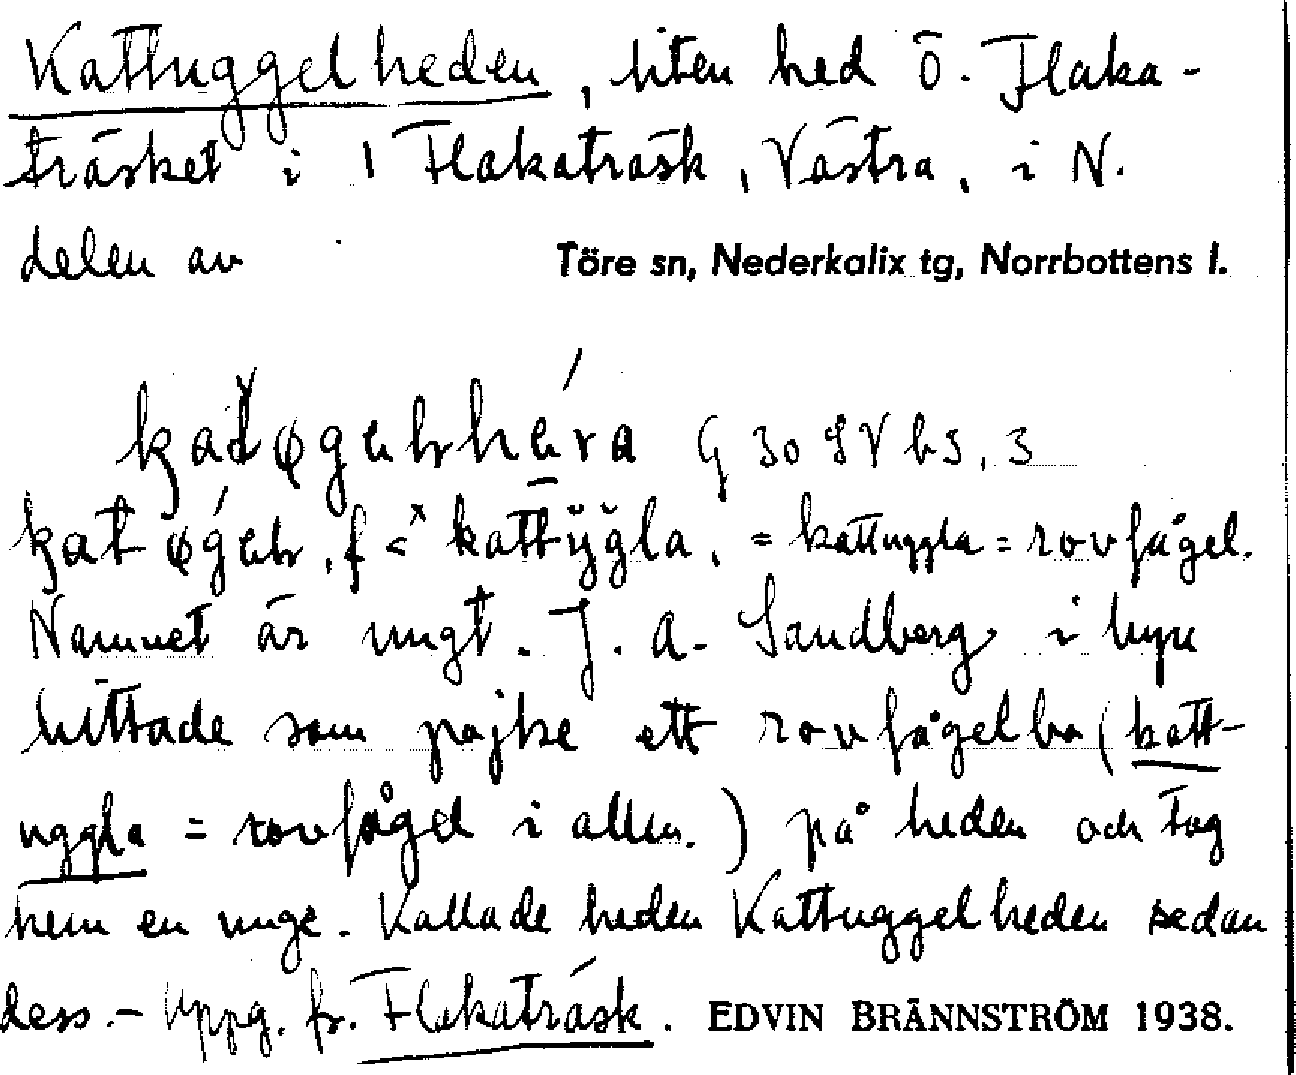 Kattuggelheden, liten hed Ö. Flaka-
träsket i 1 Flakaträsk, Västra, i N.
delen av Töre sn, Nederkalix tg, Norrbottens l.
G 30 SV b5, 3
f < × = kattuggla = rovfågel.
Namnet är ungt. J. A. Sandberg i
hittade som pojke ett rovfågelbo (katt-
uggla = rovfågel i allm.) på heden och tog
hem en unge. Kallade heden Kattuggelheden sedan
dess. - Uppg. fr. Flakaträsk. EDVIN BRÄNNSTRÖM 1938.